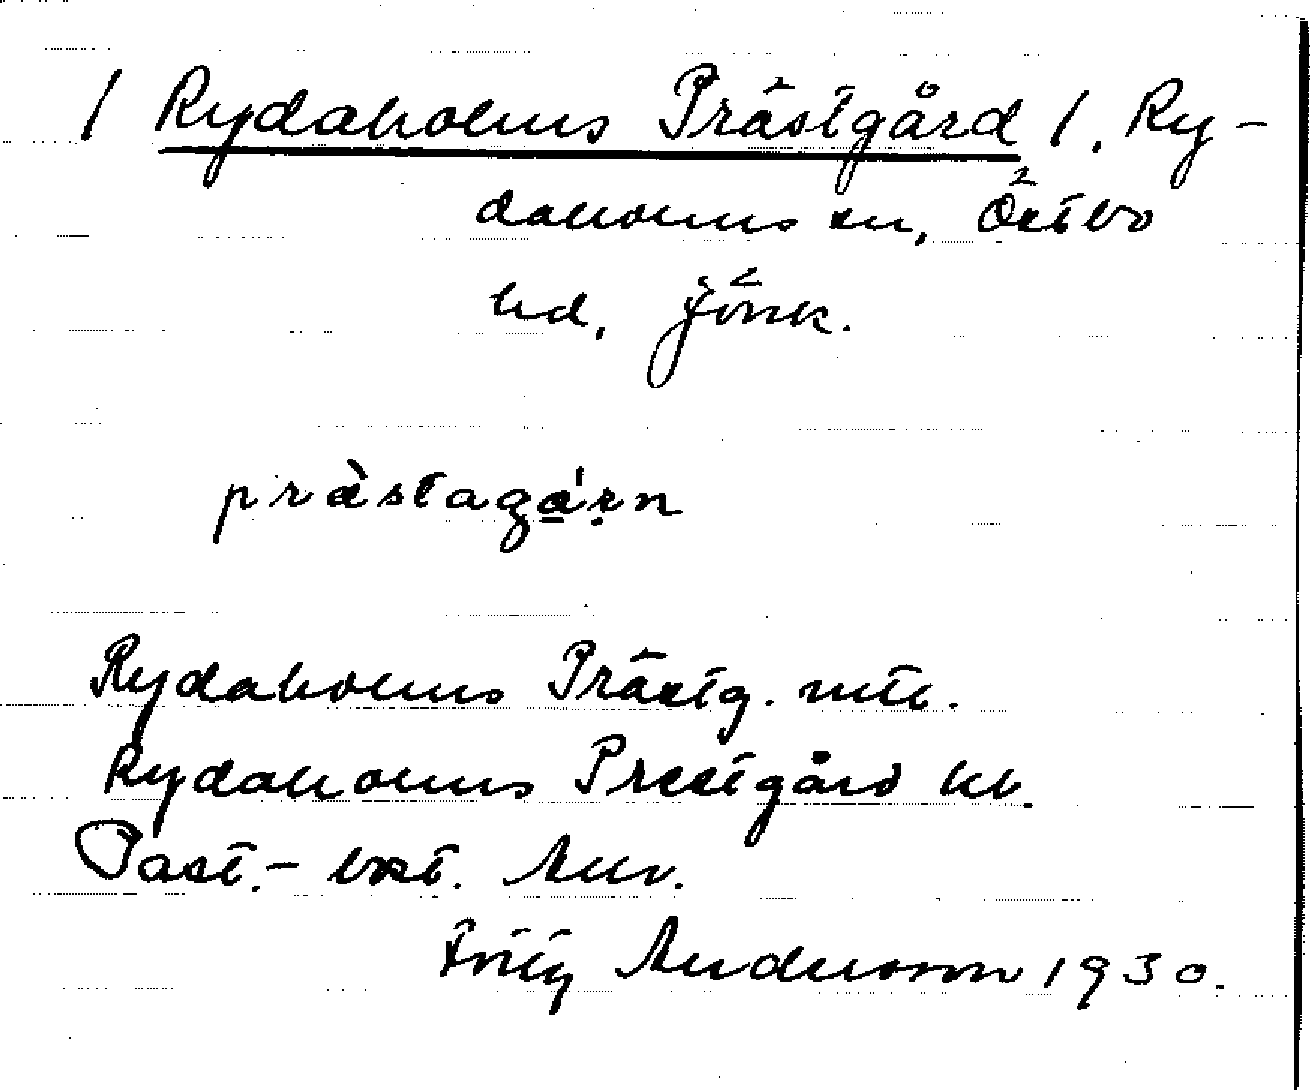 / Rydaholms Prästgård 1. Ry-
daholms sn, Östbo
hd, Jönk.
pràstagá̱ṛn
Rydaholms Prästg. mtl.
Rydaholms Prestgård kb.
Past.- bost. Anv.
Fritz Anderson 1930.